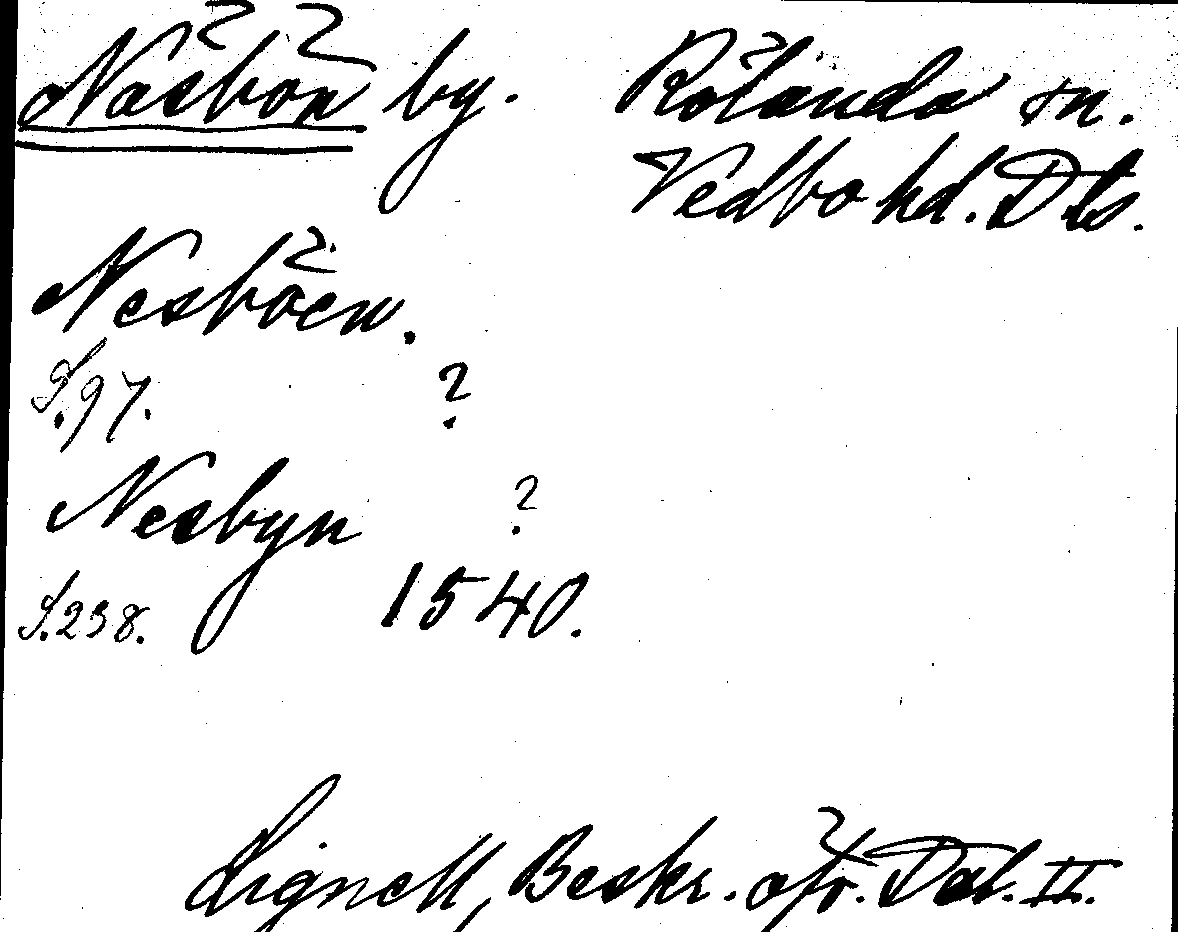 Näsbön by. Rölanda sn.
Vedbo hd. Dls.
Nesböen.
S.97. ?
Nesbyn ?
S.238. 1540.
Lignell, Beskr. öfv. Dal. II.